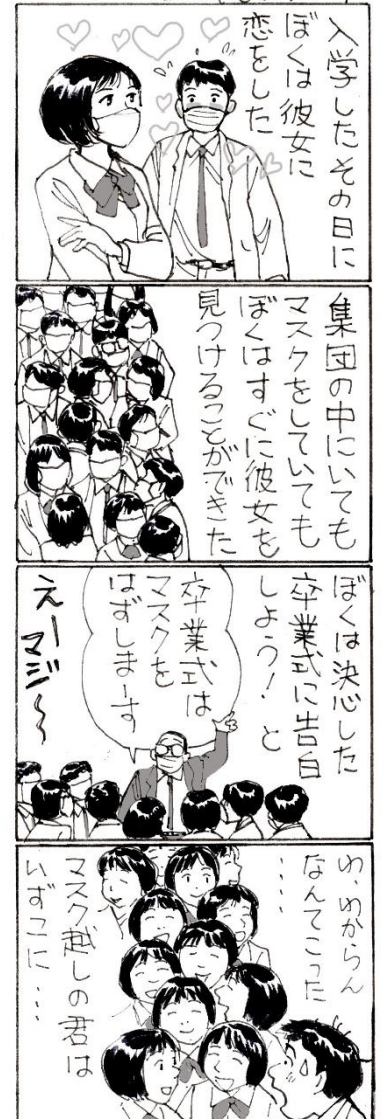 入学したその日に
ぼくは彼女に
恋をした
集団の中にいても
マスクをしていても
ぼくはすぐに彼女を
見つけることができた
ぼくは決心した
卒業式に告白
しよう！と
卒業式は
マスクを
はずしまーす
えーマジ〜
わ、わからん
なんてこった
‥‥
マスク越しの君は
いずこに…